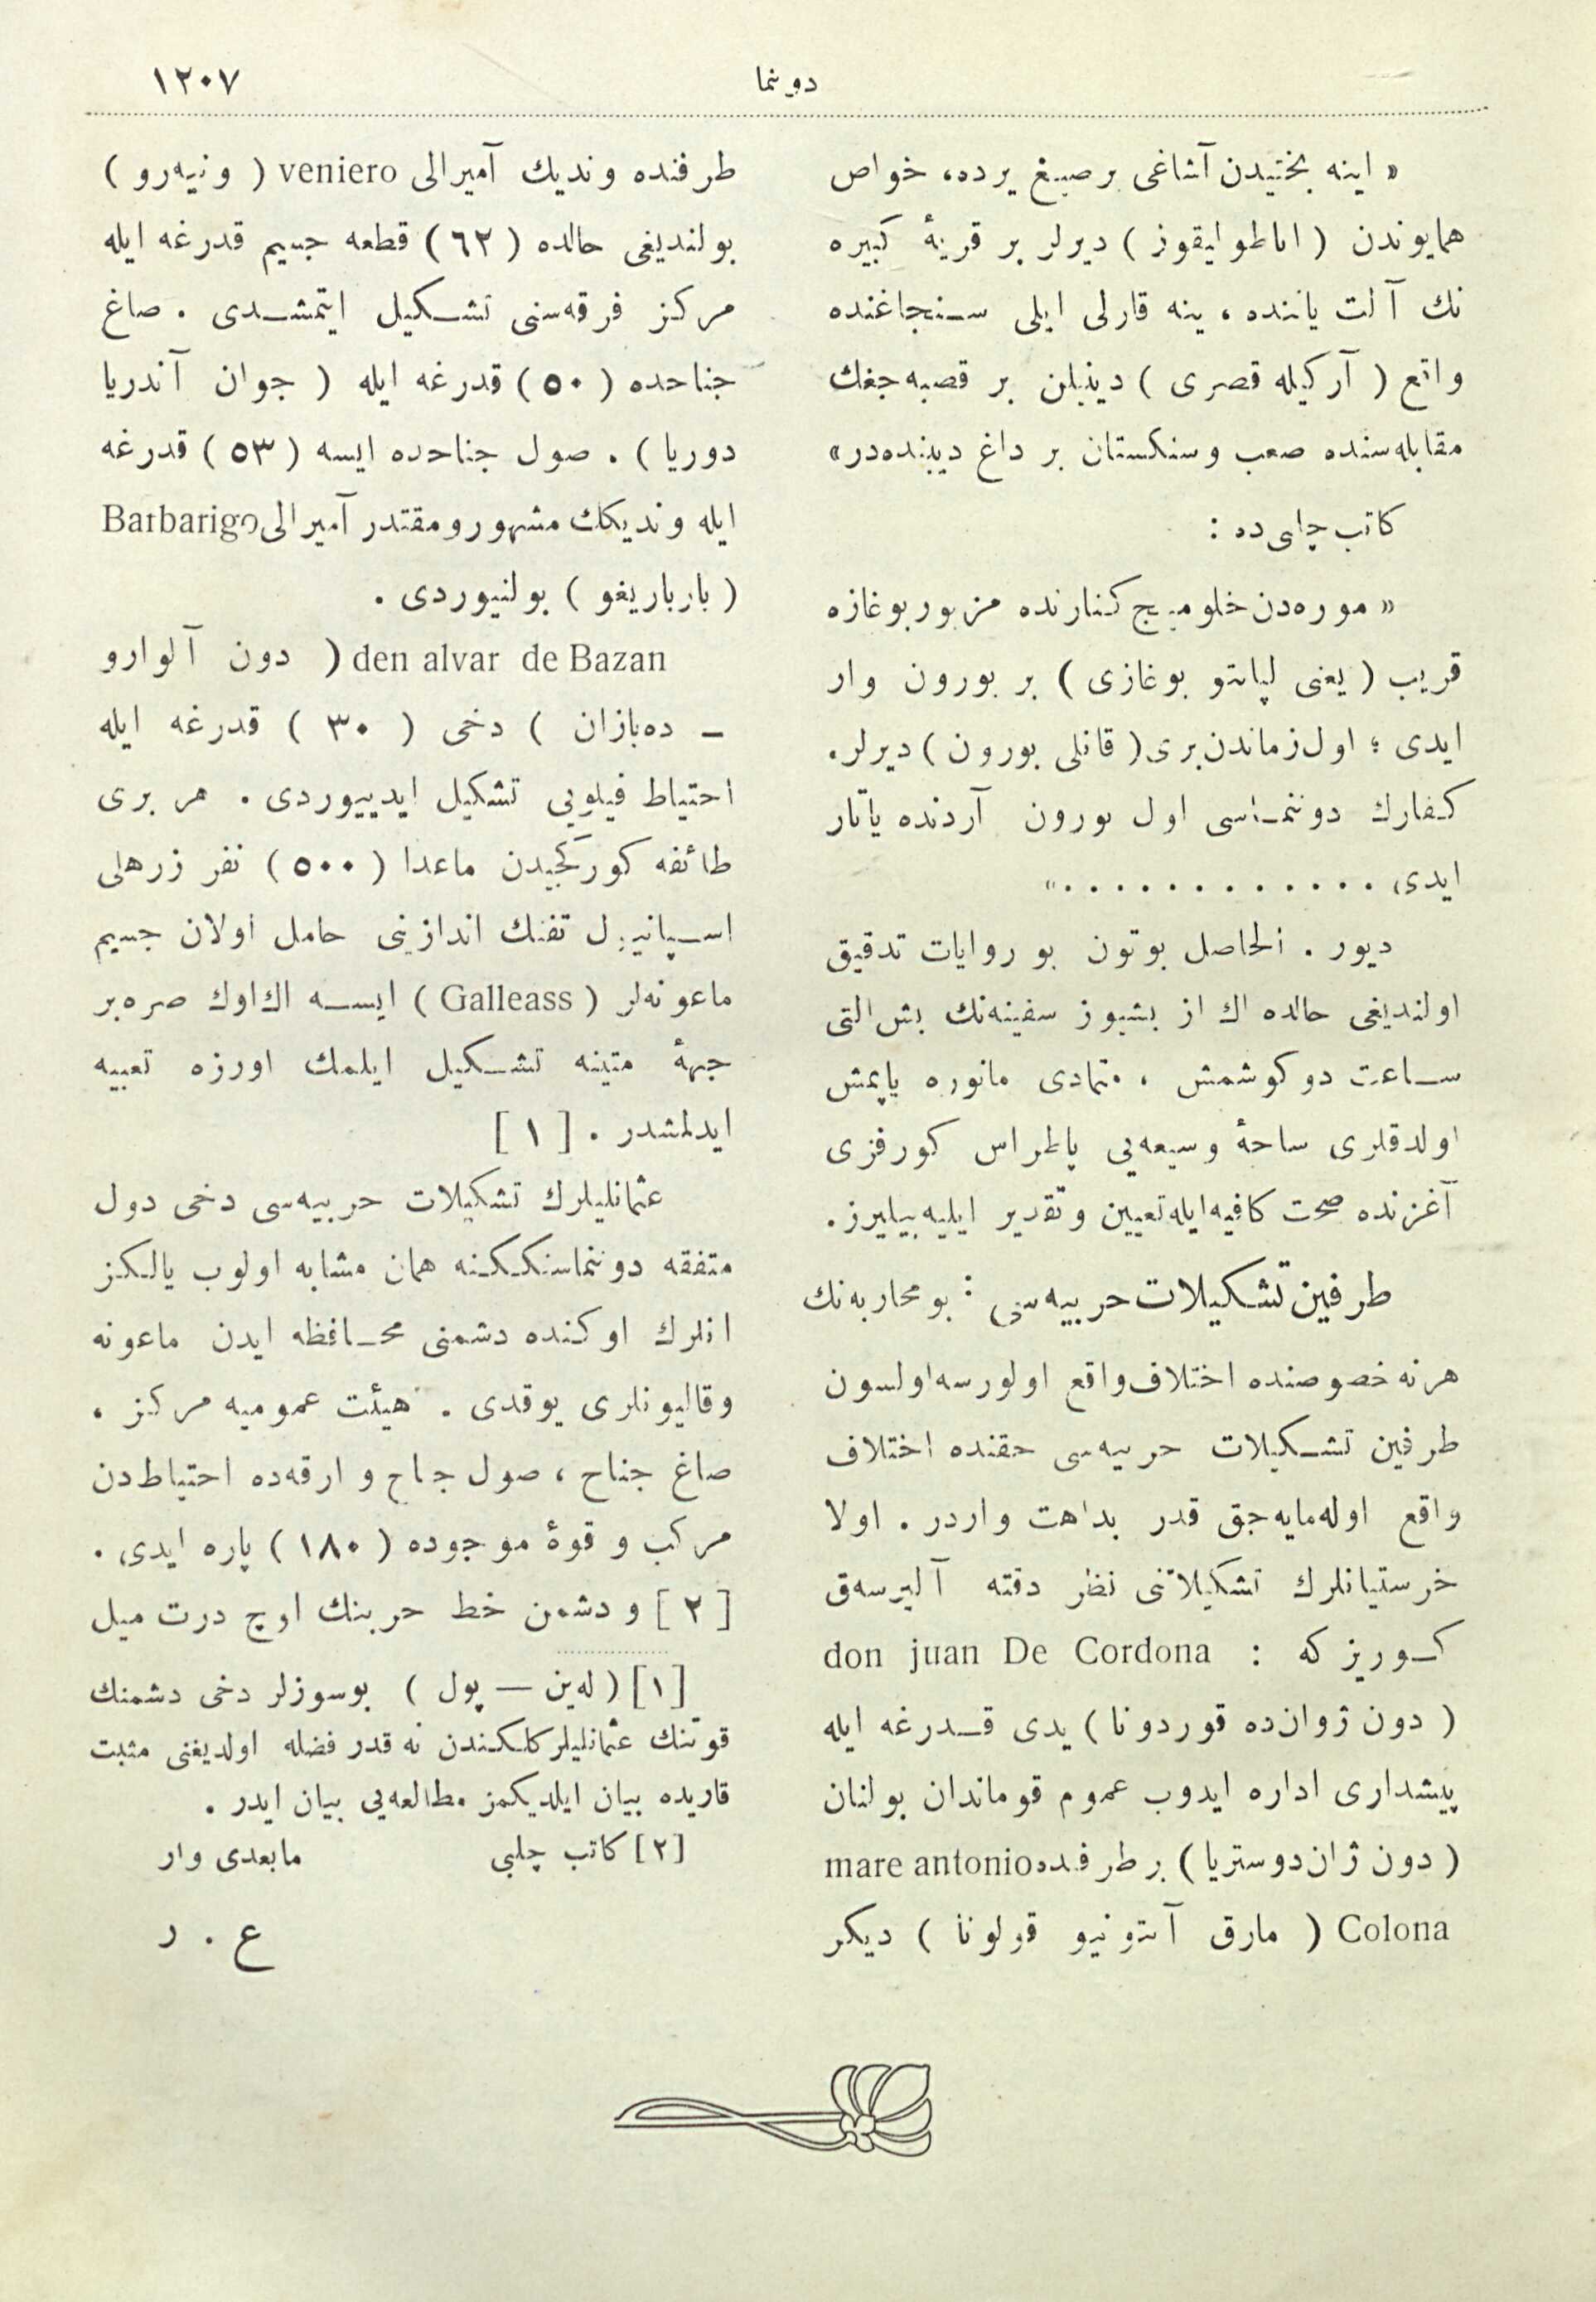 ١٢٠٧
دونما
« اینه بختیدن آشاغی بر صیغ یرده، خواص
همایوندن ( اناطولیقوز ) دیرلر بر قریهٔ کبیره
نك آلت یاننده ، ینه قارلی ایلی سنجاغنده
واقع ( آرکیله قصری ) دینیلن بر قصبه‌جغك
مقابله‌سنده صعب وسنکستان بر داغ دیبنده‌در»
کاتب چلبی‌ده :
« موره‌دن خلومیج کنارنده مزبور بوغازه
قریب ( یعنی لپانتو بوغازی ) بر بورون وار
ایدی ؛ اول زماندن بری ( قانلی بورون ) دیرلر.
کفارك دوننماسی اول بورون آردنده یاتار
ایدی . . . . . . . . . . . . . »
دیور . الحاصل بوتون بو روایات تدقیق
اولندیغی حالده اك از بشیوز سفینه‌نك بش التی
ساعت دوکوشمش ، متمادی مانوره یاپمش
اولدقلری ساحهٔ وسیعه‌یی پاطراس کورفزی
آغزنده صحت کافیه ایله تعیین وتقدیر ایلیه‌بیلیرز.
طرفین تشکیلات حربیه‌سی : بو محاربه‌نك
هرنه خصوصنده اختلاف واقع اولورسه اولسون
طرفین تشکیلات حربیه‌سی حقنده اختلاف
واقع اوله‌مایه‌جق قدر بداهت واردر . اولا
خرستیانلرك تشکیلاتنی نظر دقته آلیرسه‌ق
کوریز که : don juan De Cordona
( دون ژوان ده قوردونا ) یدی قدرغه ایله
پیشداری اداره ایدوب عموم قوماندان بولنان
( دون ژان دوستریا ) بر طرفده mare antonio
Colona ( مارق آنتونیو قولونا ) دیکر
طرفنده وندیك آمیرالی veniero ( ونیه‌رو )
بولندیغی حالده ( ٦٢ ) قطعه جسیم قدرغه ایله
مرکز فرقه‌سنی تشکیل ایتمشدی . صاغ
جناحده ( ٥٠ ) قدرغه ایله ( جوان آندریا
دوریا ) . صول جناحده ایسه ( ٥٣ ) قدرغه
ایله وندیکك مشهور ومقتدر آمیرالی Barbarigo
( بارباریغو ) بولنیوردی .
den alvar de Bazan ( دون آلوارو
ـ ده‌بازان ) دخی ( ٣٠ ) قدرغه ایله
احتیاط فیلویی تشکیل ایدییوردی . هر بری
طائفه کورکجیدن ماعدا ( ٥٠٠ ) نفر زرهلی
اسپانیول تفنك اندازینی حامل اولان جسیم
ماعونه‌لر ( Galleass ) ایسه اك اوك صره‌بر
جبههٔ متینه تشکیل ایلمك اوزره تعبیه
ایدلمشدر . [ ١ ]
عثمانلیلرك تشکیلات حربیه‌سی دخی دول
متفقه دوننماسنککنه همان مشابه اولوب یالکز
انلرك اوکنده دشمنی محافظه ایدن ماعونه
وقالیونلری یوقدی . هیئت عمومیه مرکز ،
صاغ جناح ، صول جناح و ارقه‌ده احتیاطدن
مرکب و قوهٔ موجوده ( ١٨٠ ) پاره ایدی .
[ ٢ ] و دشمن خط حربنك اوچ درت میل
[١] ( له‌ین — پول ) بوسوزلر دخی دشمنك
قوتنك عثمانلیلرکلکندن نه قدر فضله اولدیغنی مثبت
قاریده بیان ایلدیکمز مطالعه‌یی بیان ایدر .
[٢] کاتب چلبی
مابعدی وار
ع . ر